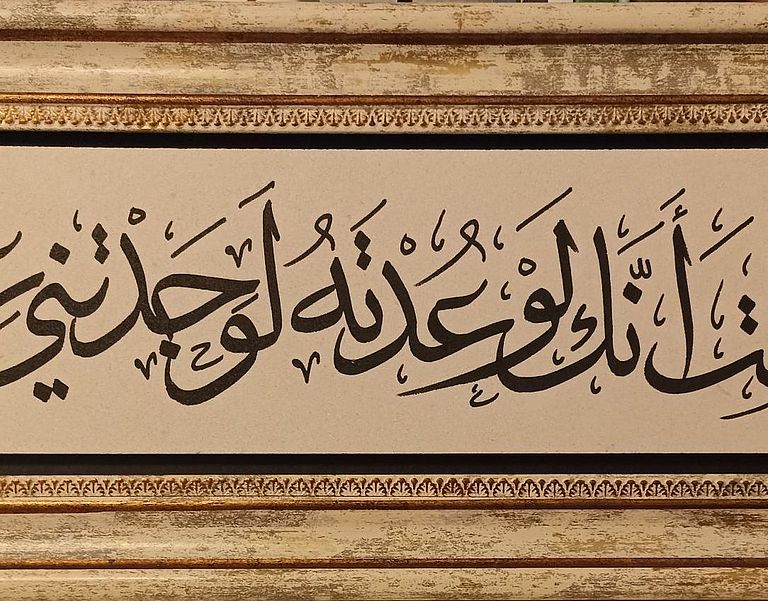 أَنَّكَ لَوْ عُدْتَهُ لَوَجَدْتَنِي